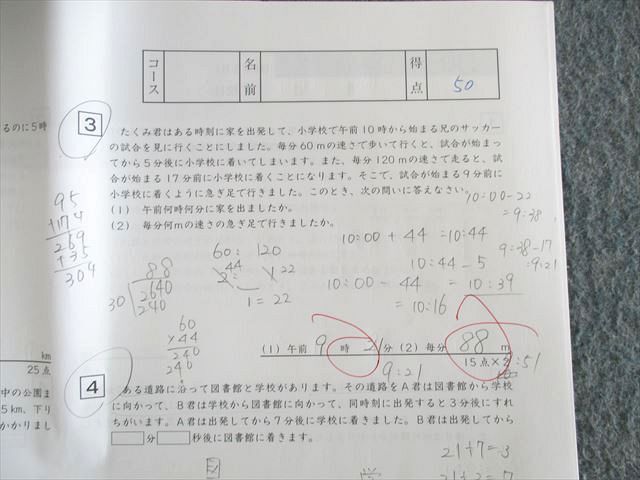 コース
名前
得点
50
るのに5時
3
たくみ君はある時刻に家を出発して、小学校で午前10時から始まる兄のサッカー
の試合を見に行くことにしました。毎分60mの速さで歩いて行くと、試合が始まっ
てから5分後に小学校に着いてしまいます。また、毎分120mの速さで走ると、試
合が始まる17分前に小学校に着くことになります。そこで、試合が始まる9分前に
小学校に着くように急ぎ足で行きました。このとき、次の問いに答えなさい。
(1) 午前何時何分に家を出ましたか。
(2) 毎分何mの速さの急ぎ足で行きましたか。
10:00-22
=9:38
95
+174
269
+35
304
60:120
1=22
88
30
2640
240
60
×44
240
240
10:00+44=10:44
10:44-5
=10:39
10:00-44
=10:16
9:38-17
=9:21
(1) 午前 9 時 21 分 (2) 毎分 88 m
15点×2
9:21
:51
km
25点
4
ある道路に沿って図書館と学校があります。その道路をA君は図書館から学校
に向かって、B君は学校から図書館に向かって、同時刻に出発すると3分後にすれ
ちがいます。A君は出発してから7分後に学校に着きました。B君は出発してから
分 秒後に図書館に着きます。
中の公園ま
5km、下り
かかりまし
21÷7=3